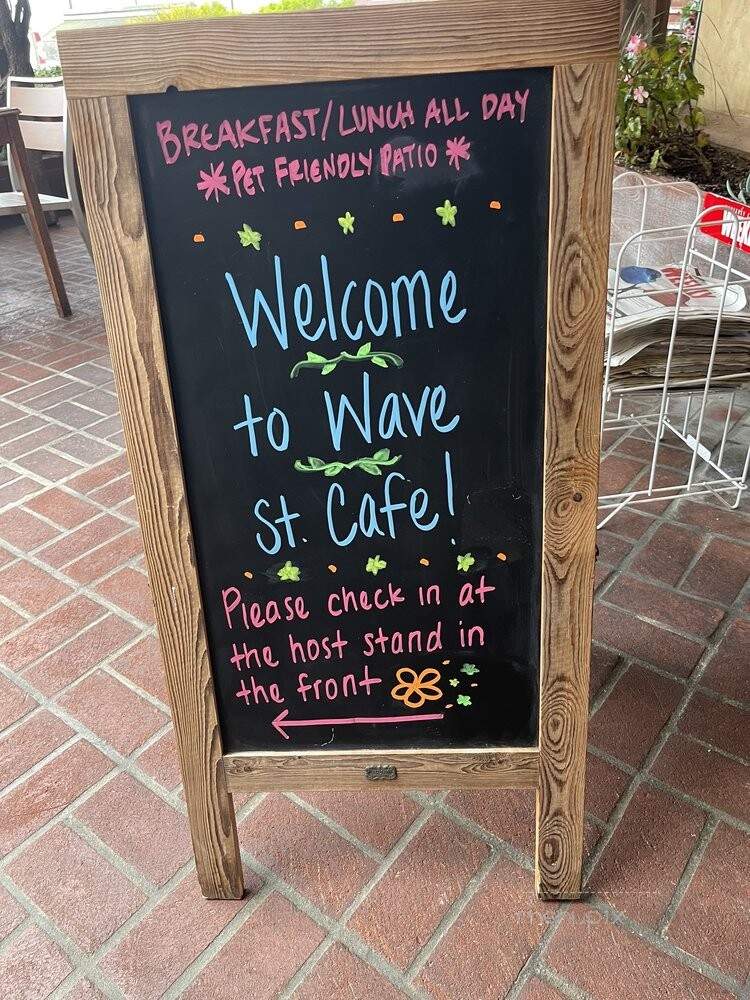 BREAKFAST/LUNCH ALL DAY
*PET FRIENDLY PATIO*
Welcome
to Wave
St. Cafe!
Please check in at
the host stand in
the front
WEEKLY